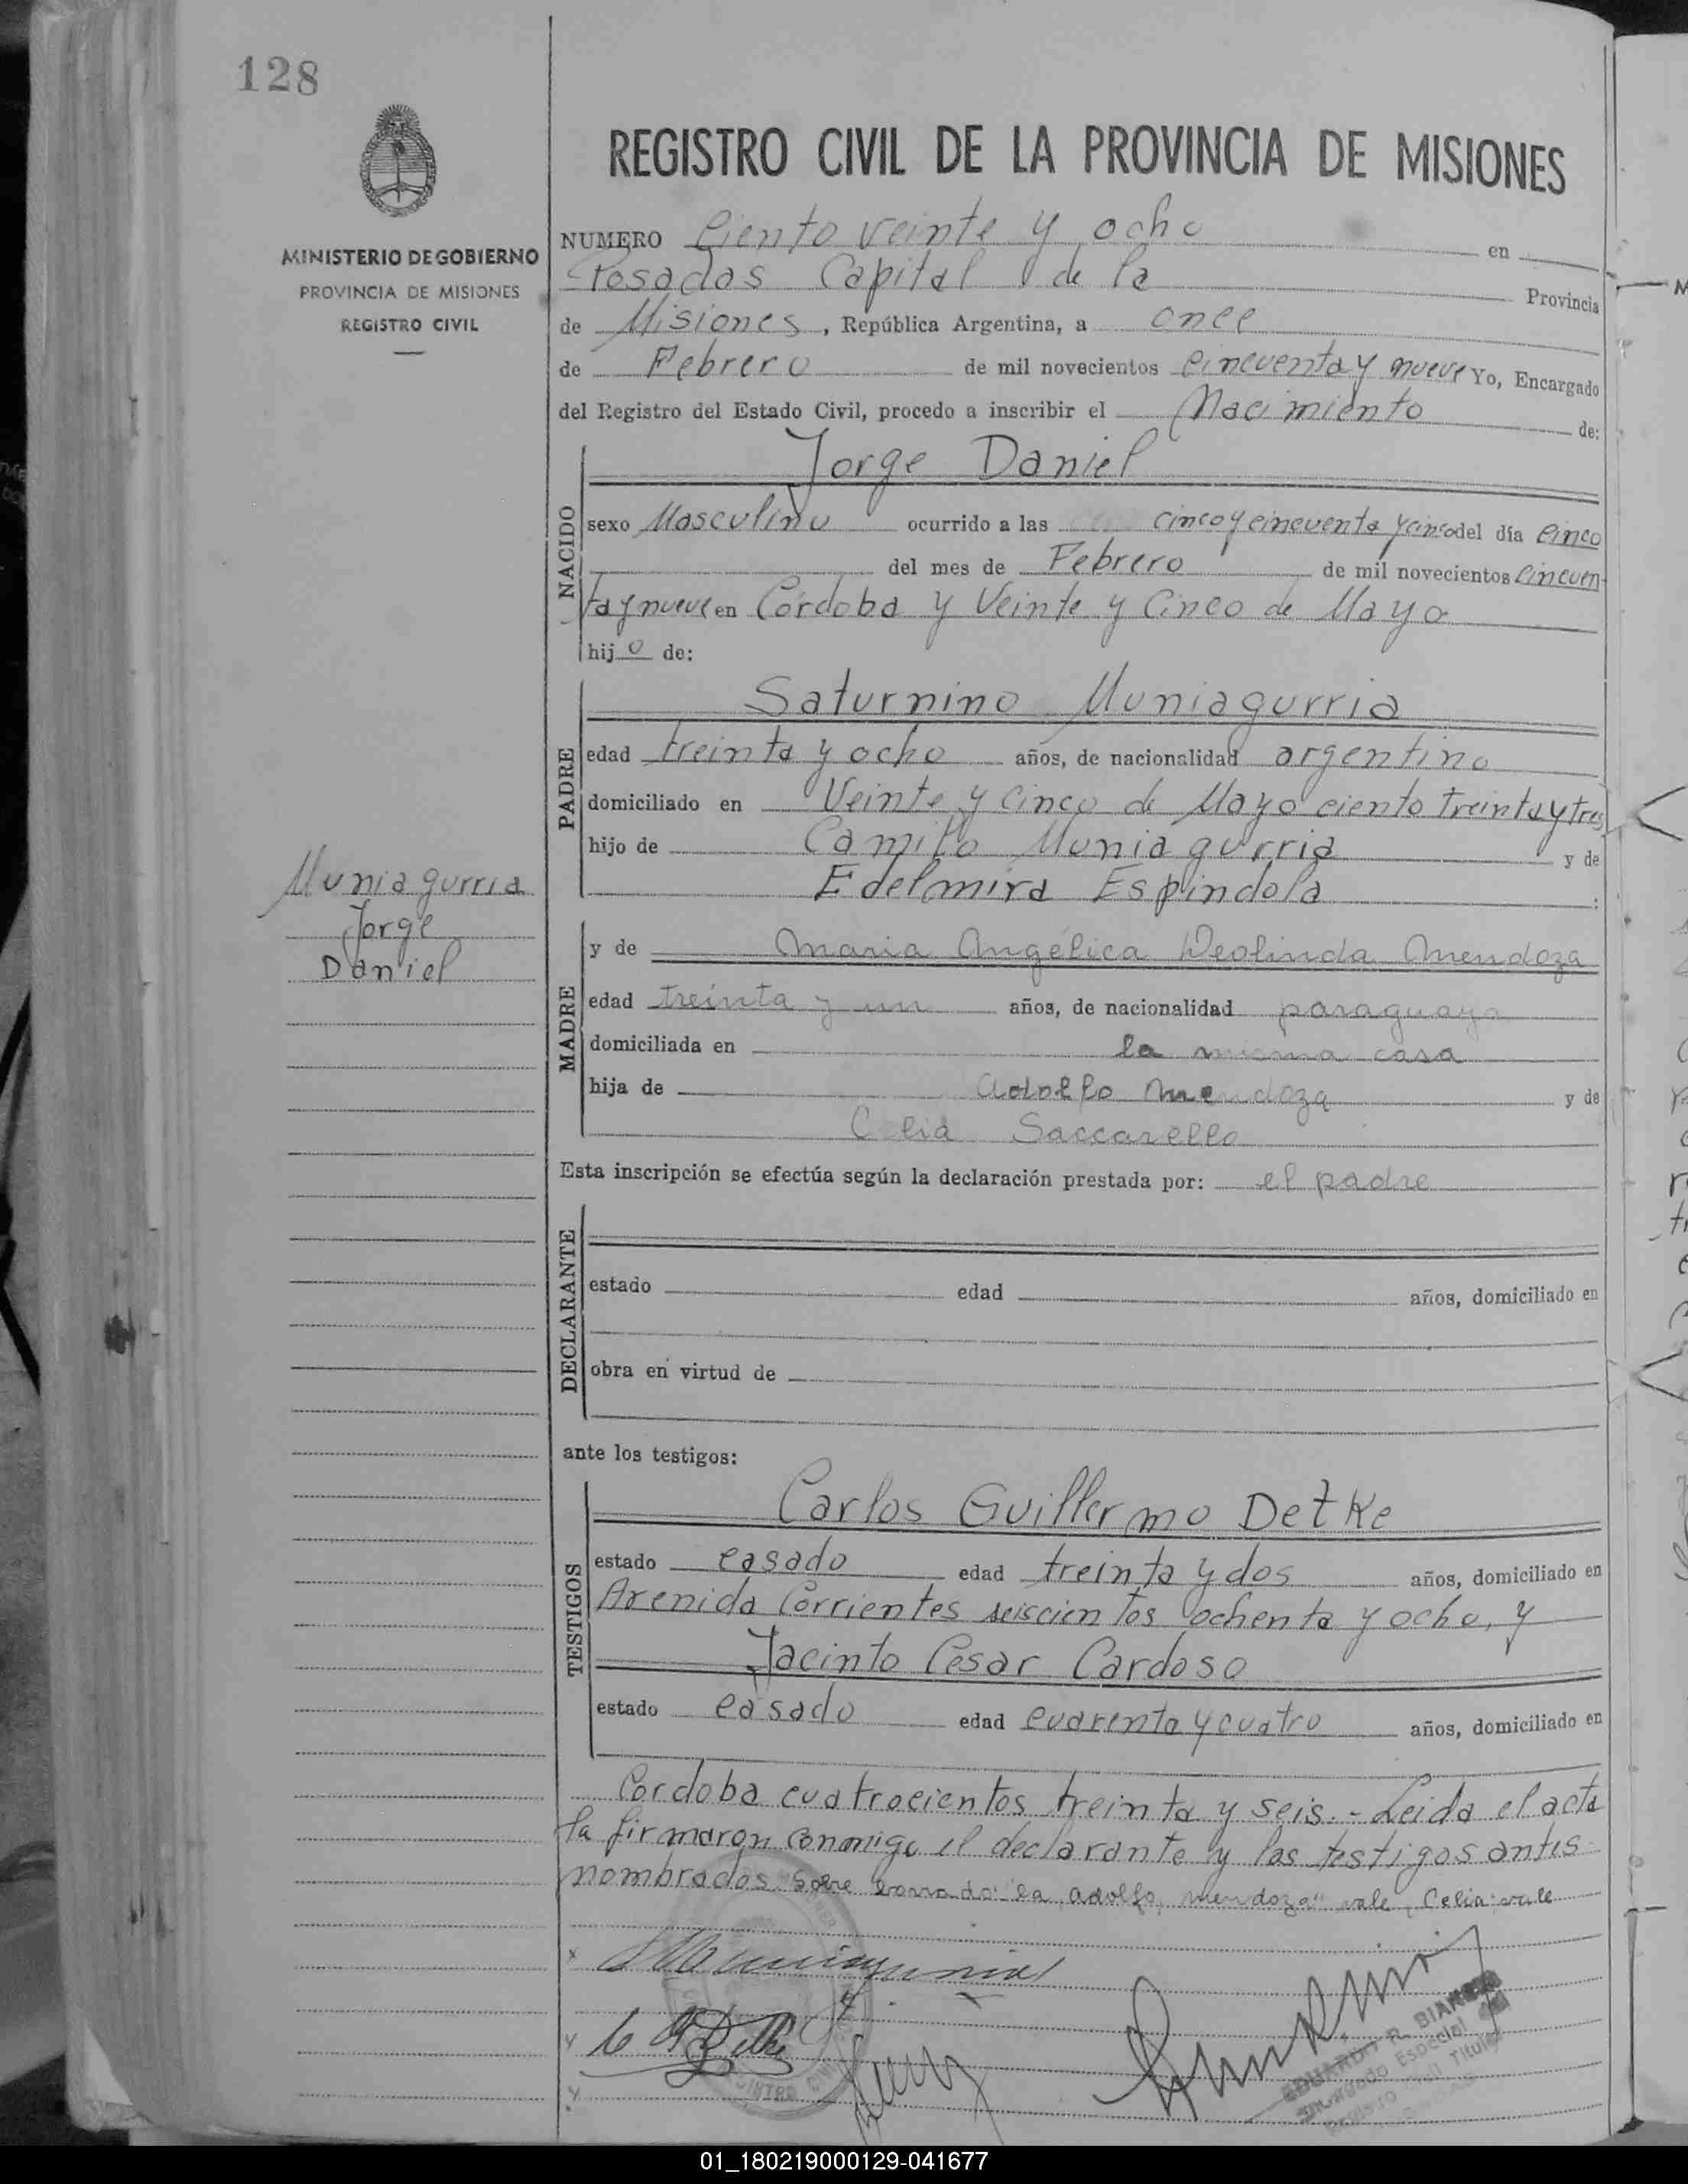 128
MINISTERIO DE GOBIERNO
PROVINCIA DE MISIONES
REGISTRO CIVIL
Muniagurria
Jorge
Daniel
REGISTRO CIVIL DE LA PROVINCIA DE MISIONES
NUMERO Ciento veinte y ocho en
Posadas Capital de la Provincia
de Misiones, República Argentina, a once
de Febrero de mil novecientos cincuenta y nueve Yo, Encargado
del Registro del Estado Civil, procedo a inscribir el Nacimiento de:
NACIDO
Jorge Daniel
sexo Masculino ocurrido a las cinco y cincuenta y cinco del día cinco
del mes de Febrero de mil novecientos cincuen
ta y nueve en Córdoba y Veinte y Cinco de Mayo
hijo de:
PADRE
Saturnino Muniagurria
edad treinta y ocho años, de nacionalidad argentino
domiciliado en Veinte y Cinco de Mayo ciento treinta y tres
hijo de Camilo Muniagurria y de
Edelmira Espindola :
MADRE
y de Maria Angélica Deolinda Mendoza
edad treinta y un años, de nacionalidad paraguaya
domiciliada en la misma casa
hija de Adolfo Mendoza y de
Celia Saccarello
Esta inscripción se efectúa según la declaración prestada por: el padre
DECLARANTE
estado edad años, domiciliado en
obra en virtud de
ante los testigos:
TESTIGOS
Carlos Guillermo Detke
estado casado edad treinta y dos años, domiciliado en
Avenida Corrientes seiscientos ochenta y ocho, y
Jacinto Cesar Cardoso
estado casado edad cuarenta y cuatro años, domiciliado en
Cordoba cuatrocientos treinta y seis.- Leida el acta
la firmaron conmigo el declarante y los testigos antes
nombrados. Sobre borrado: la, adolfo, mendoza" vale, Celia: vale
EDUARDO R.
Encargado Especial
Registro Civil Titular
01_180219000129-041677